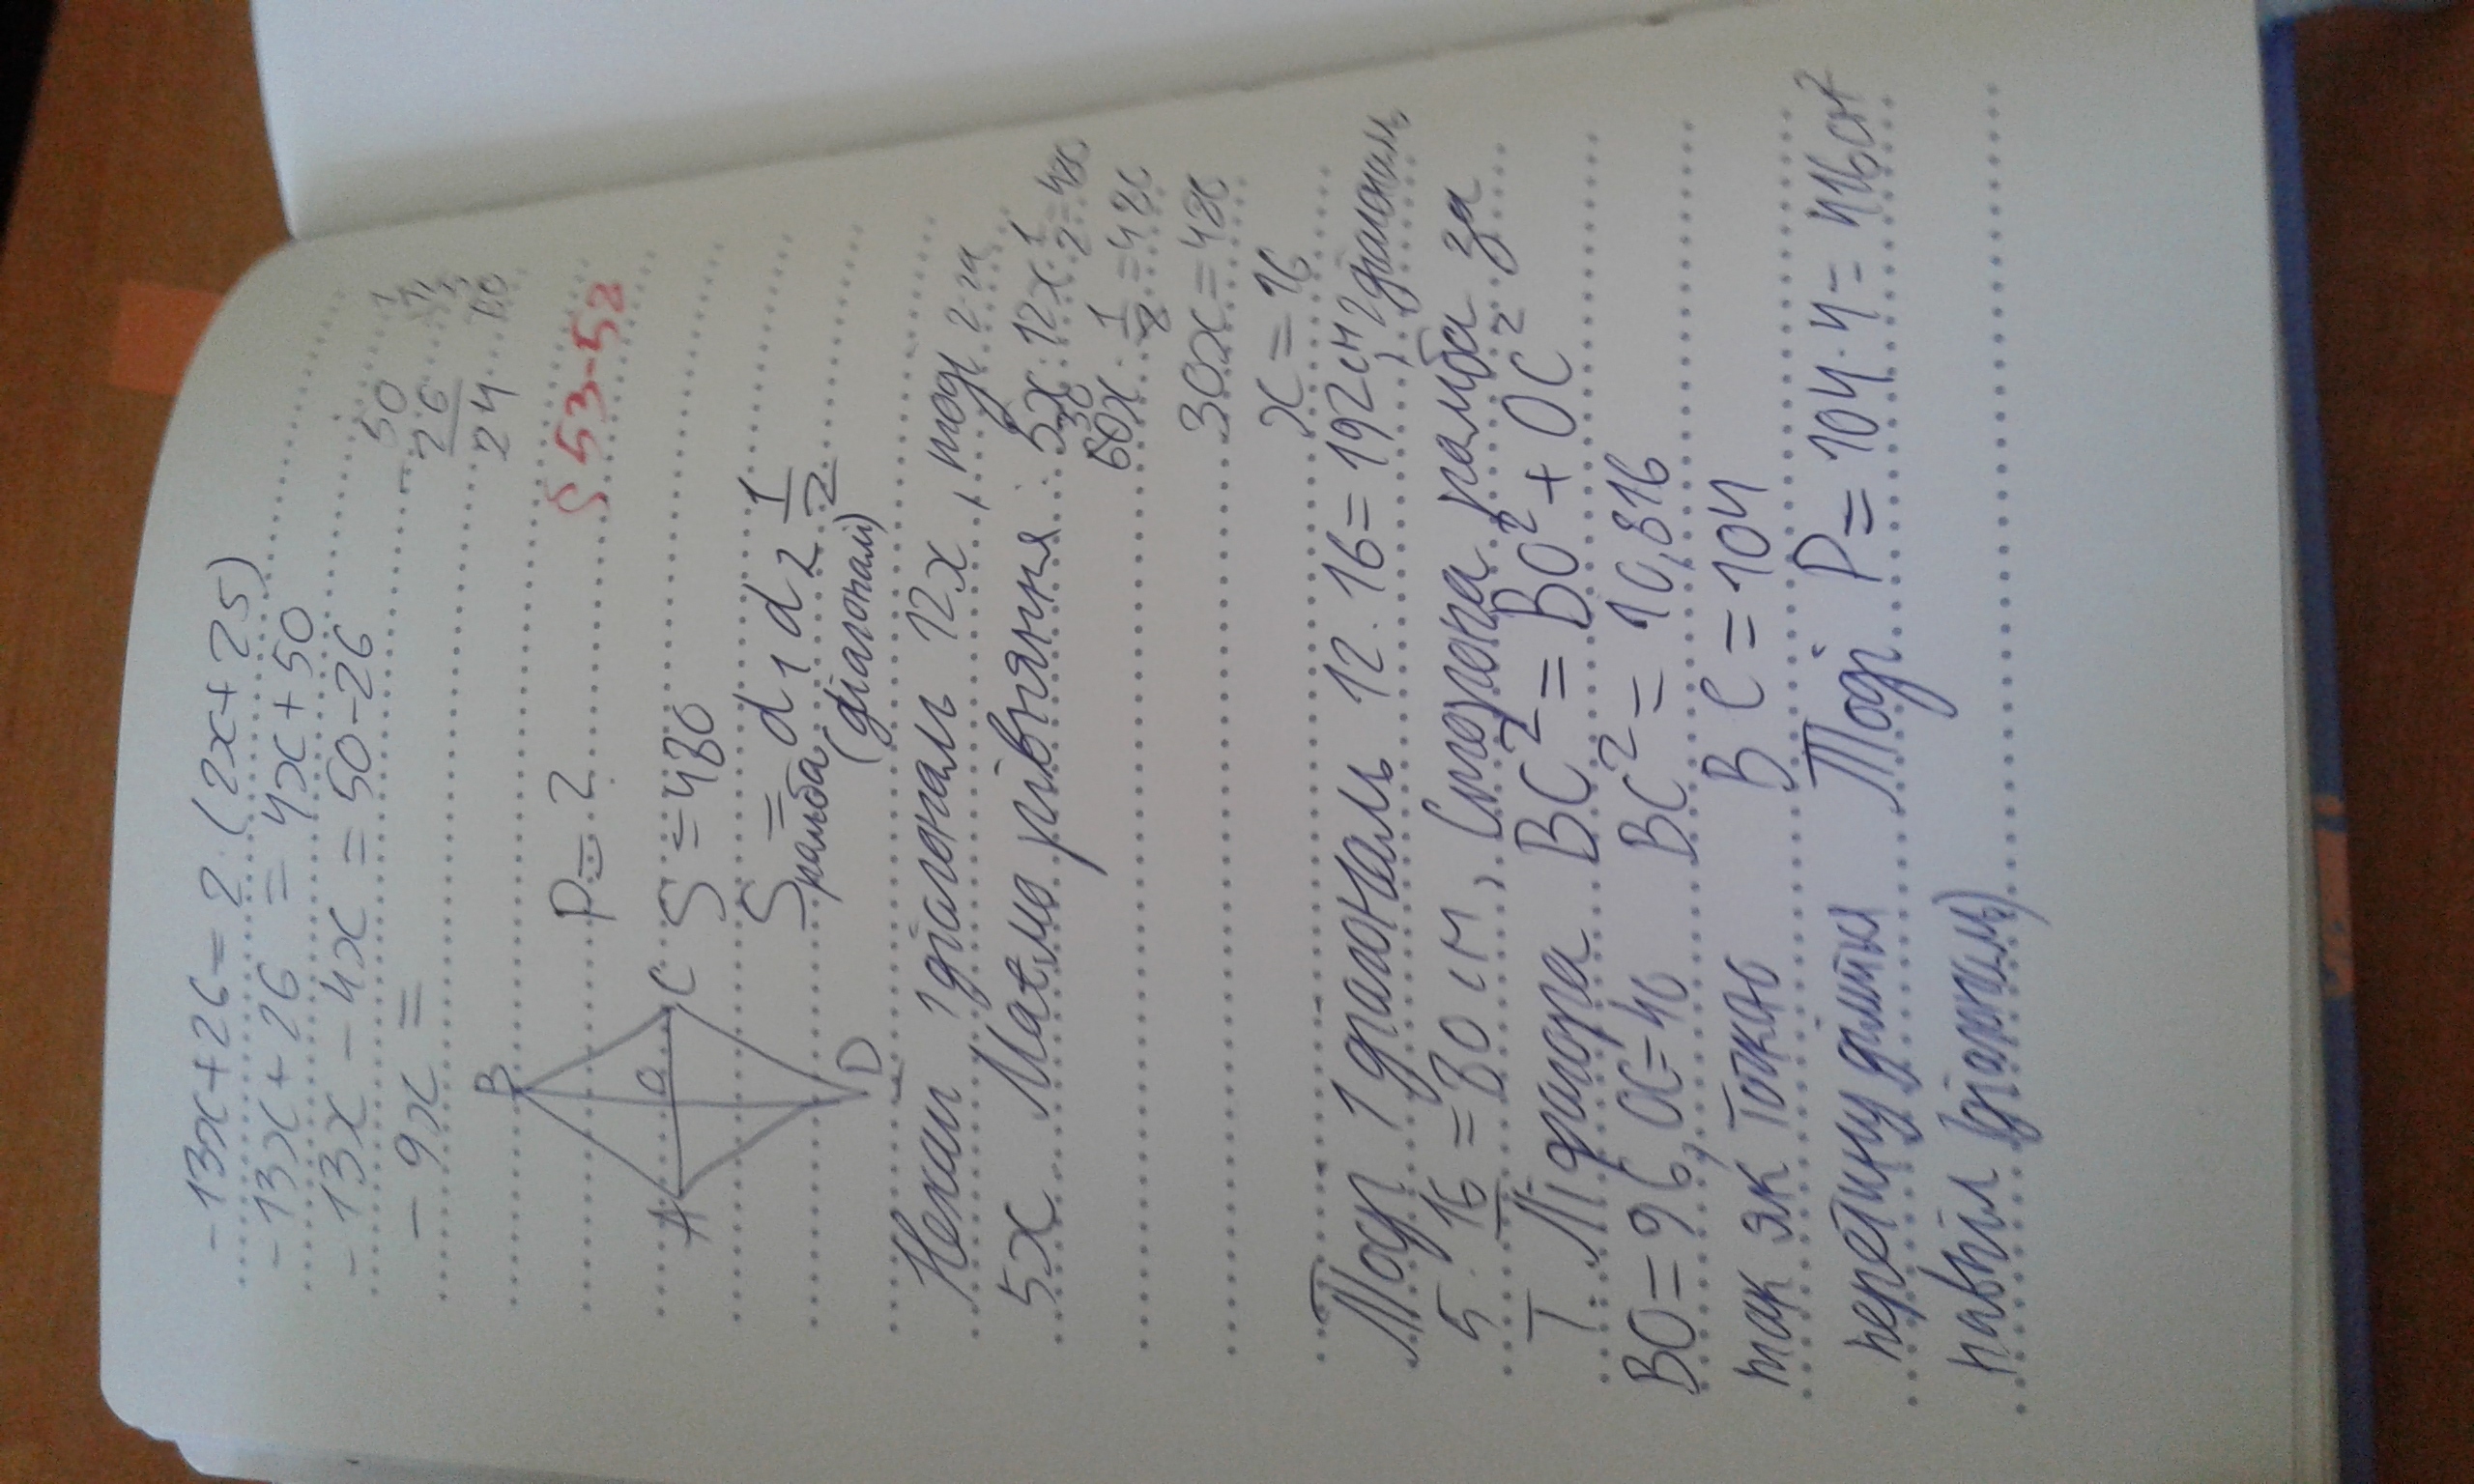 -13x+26=2·(2x+25)
-13x+26 = 4x+50
-13x-4x = 50-26
-9x =
50
26
24
§ 53-58
B
A
O
C
D
P=?
S=480
S ромба = d1 d2 1/2
(діагоналі)
Нехай 1 діагональ 12x, тоді 2-га
5x Маємо рівняння: 5x·12x·1/2=480
60x·1/2=480
30x=480
x=16
Тоді 1 діагональ 12·16=192см, 2 діагональ
5·16=80см, Сторона ромба за
Т. Піфагора BC²=BO²+OC²
BO=96, OC=40 BC²=10,816
так як Точкаю BC=104
перетину ділиться Тоді P=104·4=416см²
навпіл (діагоналі)